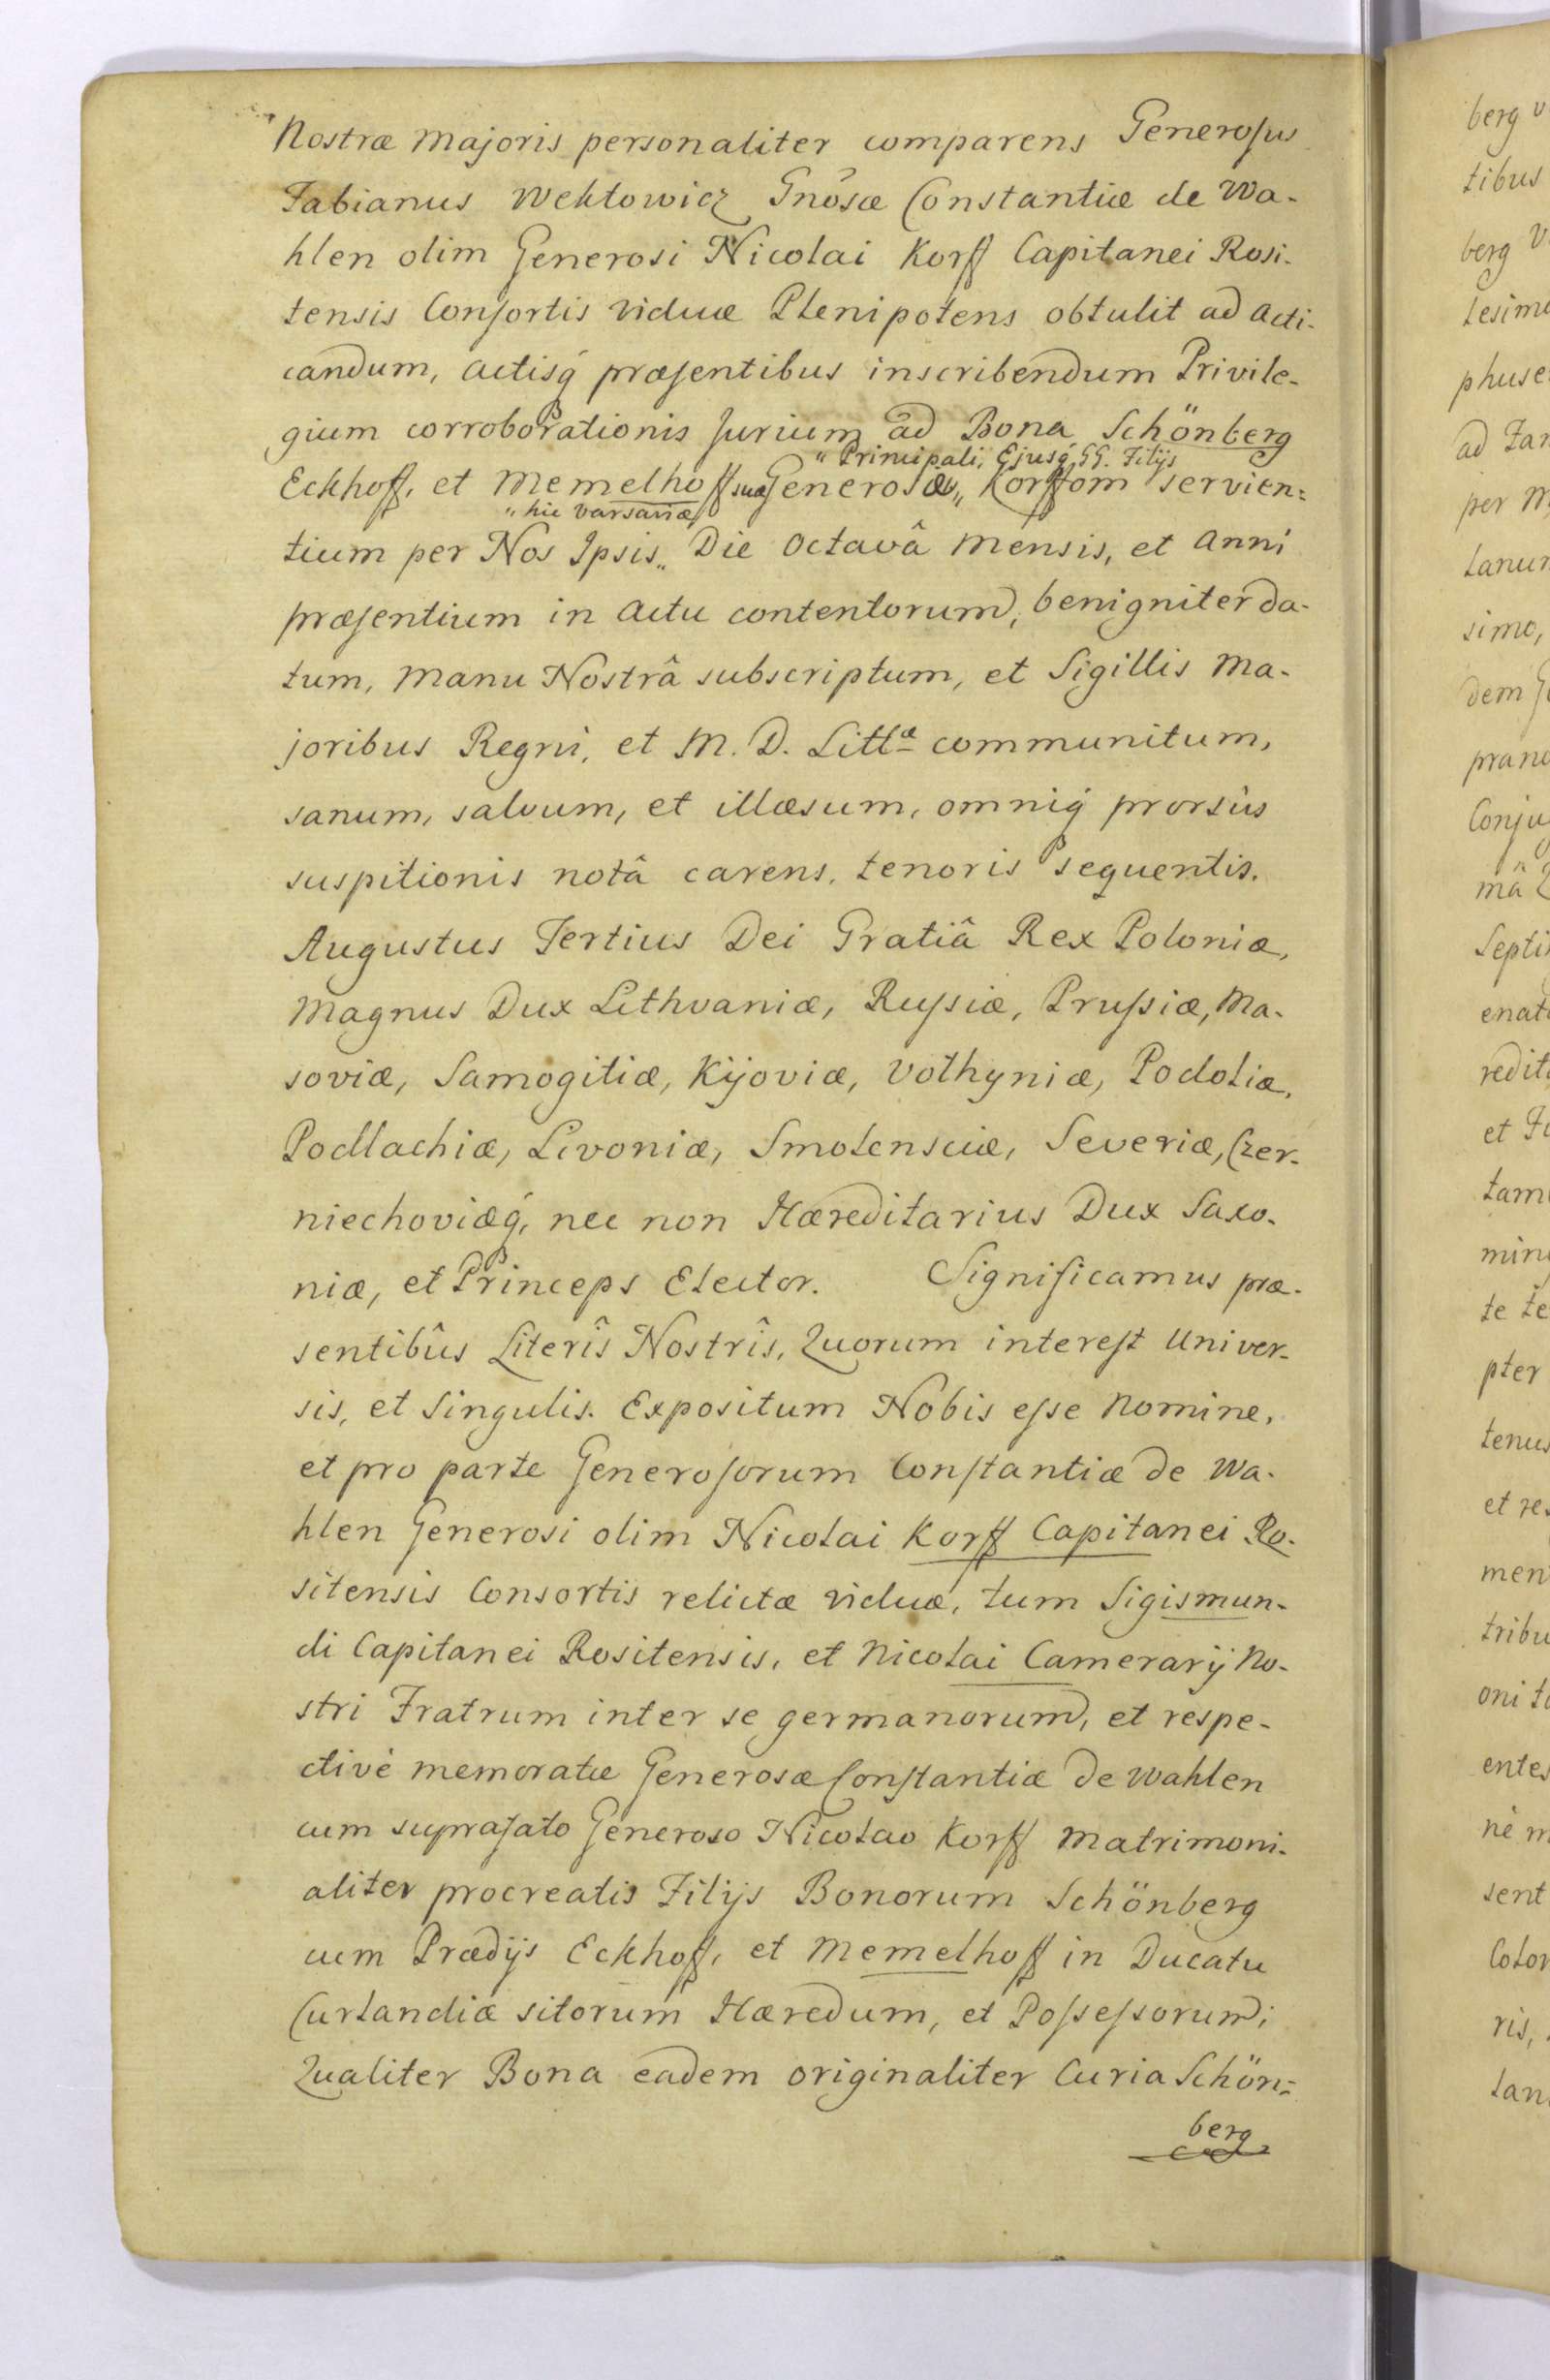 Nostræ Majoris personaliter comparens Generosus
Fabianus Wektowicz Gnosæ Constantiæ de Wa-
hlen olim Generosi Nicolai Korff Capitanei Rosi-
tensis Consortis viduæ Plenipotens obtulit ad acti-
candum, actisq́ præsentibus inscribendum Privile-
gium corroborationis Jurium ad Bona Schönberg
" Principali, Ejusq́ GG. Filijs
Eckhoff, et Memelhoff suæ Generosæ„ Korffom servien=
" hic Varsaviæ
tium per Nos Ipsis„ Die Octavâ Mensis, et Anni
præsentium in Actu contentorum, benigniter da-
tum, Manu Nostrâ subscriptum, et Sigillis Ma-
joribus Regni, et M. D. Littæ communitum,
sanum, salvum, et illæsum, omniq́ prorsùs
suspitionis notâ carens, tenoris sequentis.
Augustus Tertius Dei Gratiâ Rex Poloniæ,
Magnus Dux Lithvaniæ, Russiæ, Prussiæ, Ma-
soviæ, Samogitiæ, Kijoviæ, Volhyniæ, Podoliæ,
Podlachiæ, Livoniæ, Smolensciæ, Severiæ, Czer-
niechoviæq́, nec non Hæreditarius Dux Saxo-
niæ, et Princeps Elector. Significamus præ-
sentibûs Literîs Nostrîs, Quorum interest Univer-
sis, et Singulis. Expositum Nobis esse Nomine,
et pro parte Generosorum Constantiæ de Wa-
hlen Generosi olim Nicolai Korff Capitanei Ro-
sitensis Consortis relictæ viduæ, tum Sigismun-
di Capitanei Rositensis, et Nicolai Camerarij No-
stri Fratrum inter se germanorum, et respe-
ctivè memoratæ Generosæ Constantiæ de Wahlen
cum suprafato Generoso Nicolao Korff Matrimoni-
aliter procreatis Filijs Bonorum Schönberg
cum Prædijs Eckhoff, et Memelhoff in Ducatu
Curlandiæ sitorum Hæredum, et Possessorum;
Qualiter Bona eadem originaliter Curia Schön=
berg
berg
tibus
berg
phuse
ad
per
simo,
dem
Conju
mâ
enat
redit
et
tam
min
te te
pter
tenus
et re
men
tribu
oni
entes
nè
sent
Colon
ris,
lan